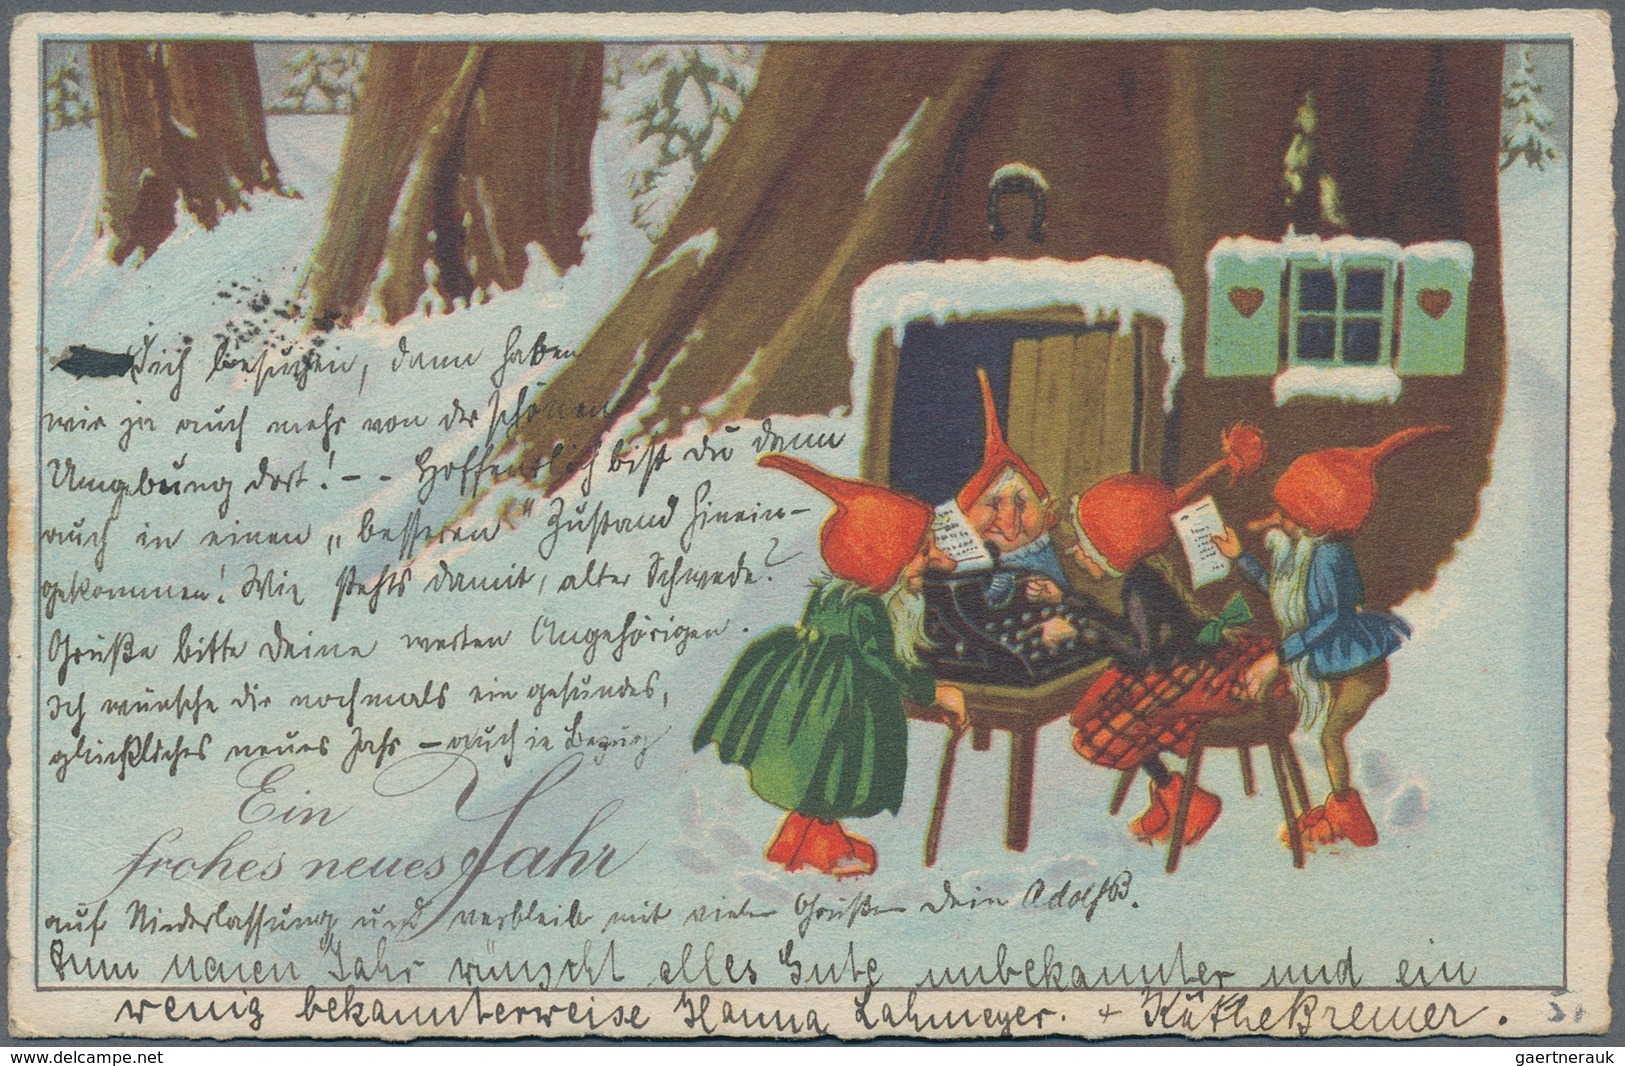 Dich besuchen, dann haben
wir ja auch mehr von der schönen
Umgebung dort! - - Hoffentlich bist du dann
auch in einen „besseren" Zustand hinein-
gekommen! Wie stehts damit, alter Schwede?
Grüße bitte Deine werten Angehörigen.
Ich wünsche dir nochmals ein gesundes,
glückliches neues Jahr - auch in Bezug
Ein
frohes neues Jahr
auf Niederlassung und verbleibe mit vielen Grüßen Dein Adolf B.
Zum neuen Jahr wünscht alles Gute unbekannter und ein
wenig bekannterweise Hanna Lahmeyer. + Käthe Bremer.
gaertnerauk @ www.delcampe.net